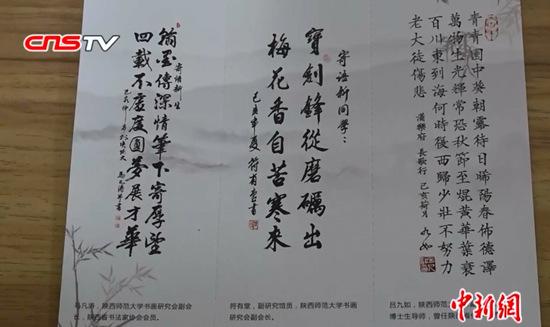 CNSTV
青青園中葵朝露待日晞陽春佈德澤
萬物生光輝常恐秋節至焜黃華葉衰
百川東到海何時復西歸少壯不努力
老大徒傷悲 漢樂府 長歌行 己亥荷月 九如
寄语新同學：
寶劍鋒從磨礪出
梅花香自苦寒來
己亥年夏 符有堂書
寄语新生
翰墨傳深情筆下寄厚望
四載不虛度圓夢展才華
马凡涛，陕西师范大学书画研究会副会
长，陕西省书法家协会会员。
符有堂，副研究馆员，陕西师范大学书画
研究会副会长。
吕九如，陕西师范
博士生导师，曾任陕西
中新網